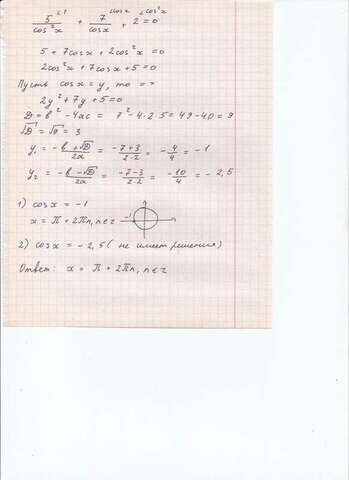 5/cos²x + 7/cosx + 2 = 0
5 + 7cosx + 2cos²x = 0
2cos²x + 7cosx + 5 = 0
Пусть cosx = y, то =>
2y² + 7y + 5 = 0
D = b² - 4ac = 7² - 4·2·5 = 49 - 40 = 9
√D = √9 = 3
y₁ = (-b + √D)/2a = (-7+3)/2·2 = -4/4 = -1
y₂ = (-b - √D)/2a = (-7-3)/2·2 = -10/4 = -2,5
1) cosx = -1
x = π + 2πn, n∈z
-1
2) cosx = -2,5 (не имеет решения)
Ответ: x = π + 2πn, n∈z